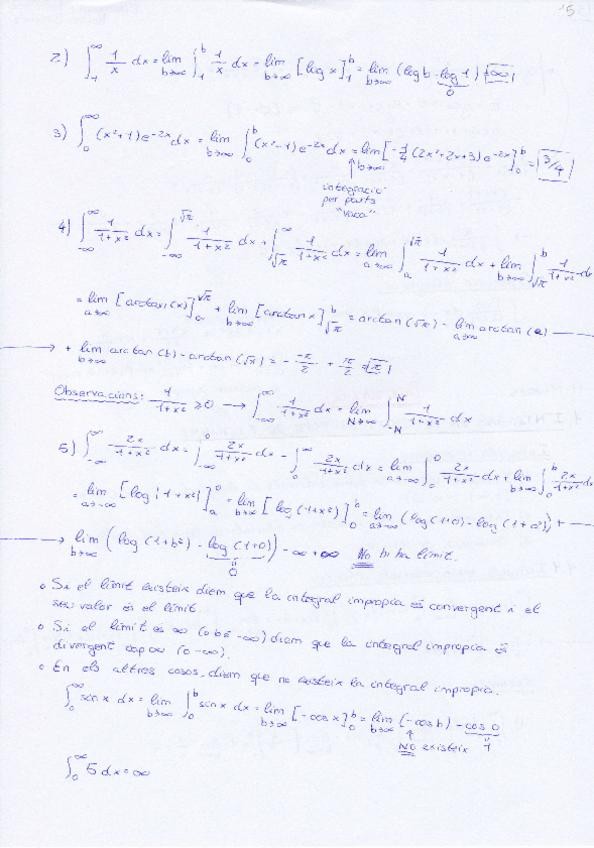 5
2) ∫_1^∞ 1/x dx = lim_{b→∞} ∫_1^b 1/x dx = lim_{b→∞} [log x]_1^b = lim_{b→∞} (log b - log 1) = ∞
0
3) ∫_0^∞ (x²+1)e^{-2x} dx = lim_{b→∞} ∫_0^b (x²-1)e^{-2x} dx = lim_{b→∞} [-1/4 (2x²+2x+3) e^{-2x}]_0^b = 3/4
integració
per parts
"vaca"
4) ∫_{-∞}^∞ 1/(1+x²) dx = ∫_{-∞}^{√π} 1/(1+x²) dx + ∫_{√π}^∞ 1/(1+x²) dx = lim_{a→∞} ∫_a^{√π} 1/(1+x²) dx + lim_{b→∞} ∫_{√π}^b 1/(1+x²) dx
= lim_{a→∞} [arctan(x)]_a^{√π} + lim_{b→∞} [arctan x]_{√π}^b = arctan(√π) - lim_{a→∞} arctan(a)
→ + lim_{b→∞} arctan(b) - arctan(√π) = - -π/2 + π/2
Observacions: 1/(1+x²) ≥ 0 → ∫_{-∞}^∞ 1/(1+x²) dx = lim_{N→∞} ∫_{-N}^N 1/(1+x²) dx
5) ∫_{-∞}^∞ 2x/(1+x²) dx = ∫_{-∞}^0 2x/(1+x²) dx - ∫_0^∞ 2x/(1+x²) dx = lim_{a→-∞} ∫_a^0 2x/(1+x²) dx + lim_{b→∞} ∫_0^b 2x/(1+x²) dx
= lim_{a→-∞} [log(1+x²)]_a^0 = lim_{b→∞} [log(1+x²)]_0^b = lim_{a→-∞} (log(1+0) - log(1+a²)) +
→ lim_{b→∞} (log(1+b²) - log(1+0)) - ∞ + ∞ No hi ha límit.
0
o Si el límit existeix diem que la integral impropia és convergent i el
seu valor és el límit.
o Si el límit és ∞ (o bé -∞) diem que la integral impropia és
divergent cap a ∞ (o -∞).
o En els altres casos, diem que no existeix la integral impropia.
∫_0^∞ sin x dx = lim_{b→∞} ∫_0^b sin x dx = lim_{b→∞} [-cos x]_0^b = lim_{b→∞} (-cos b) - cos 0
NO existeix 1
∫_0^∞ 5 dx = ∞